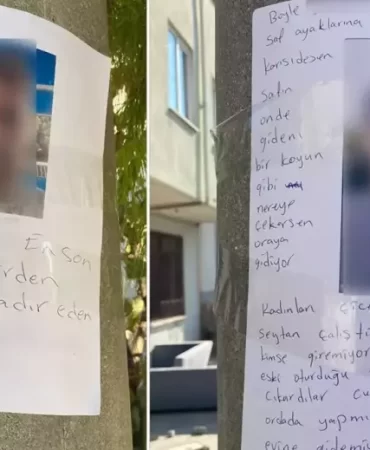 En son
rden
adır eden
Böyle
saf ayaklarına
karısıdesen
satın
önde
gideni
bir koyun
gibi
nereye
çekersen
oraya
gidiyor
Kadınları
şeytan
kimse giremiyor
eski oturduğu
çıkardılar
orada yapmı
evine gidemiy